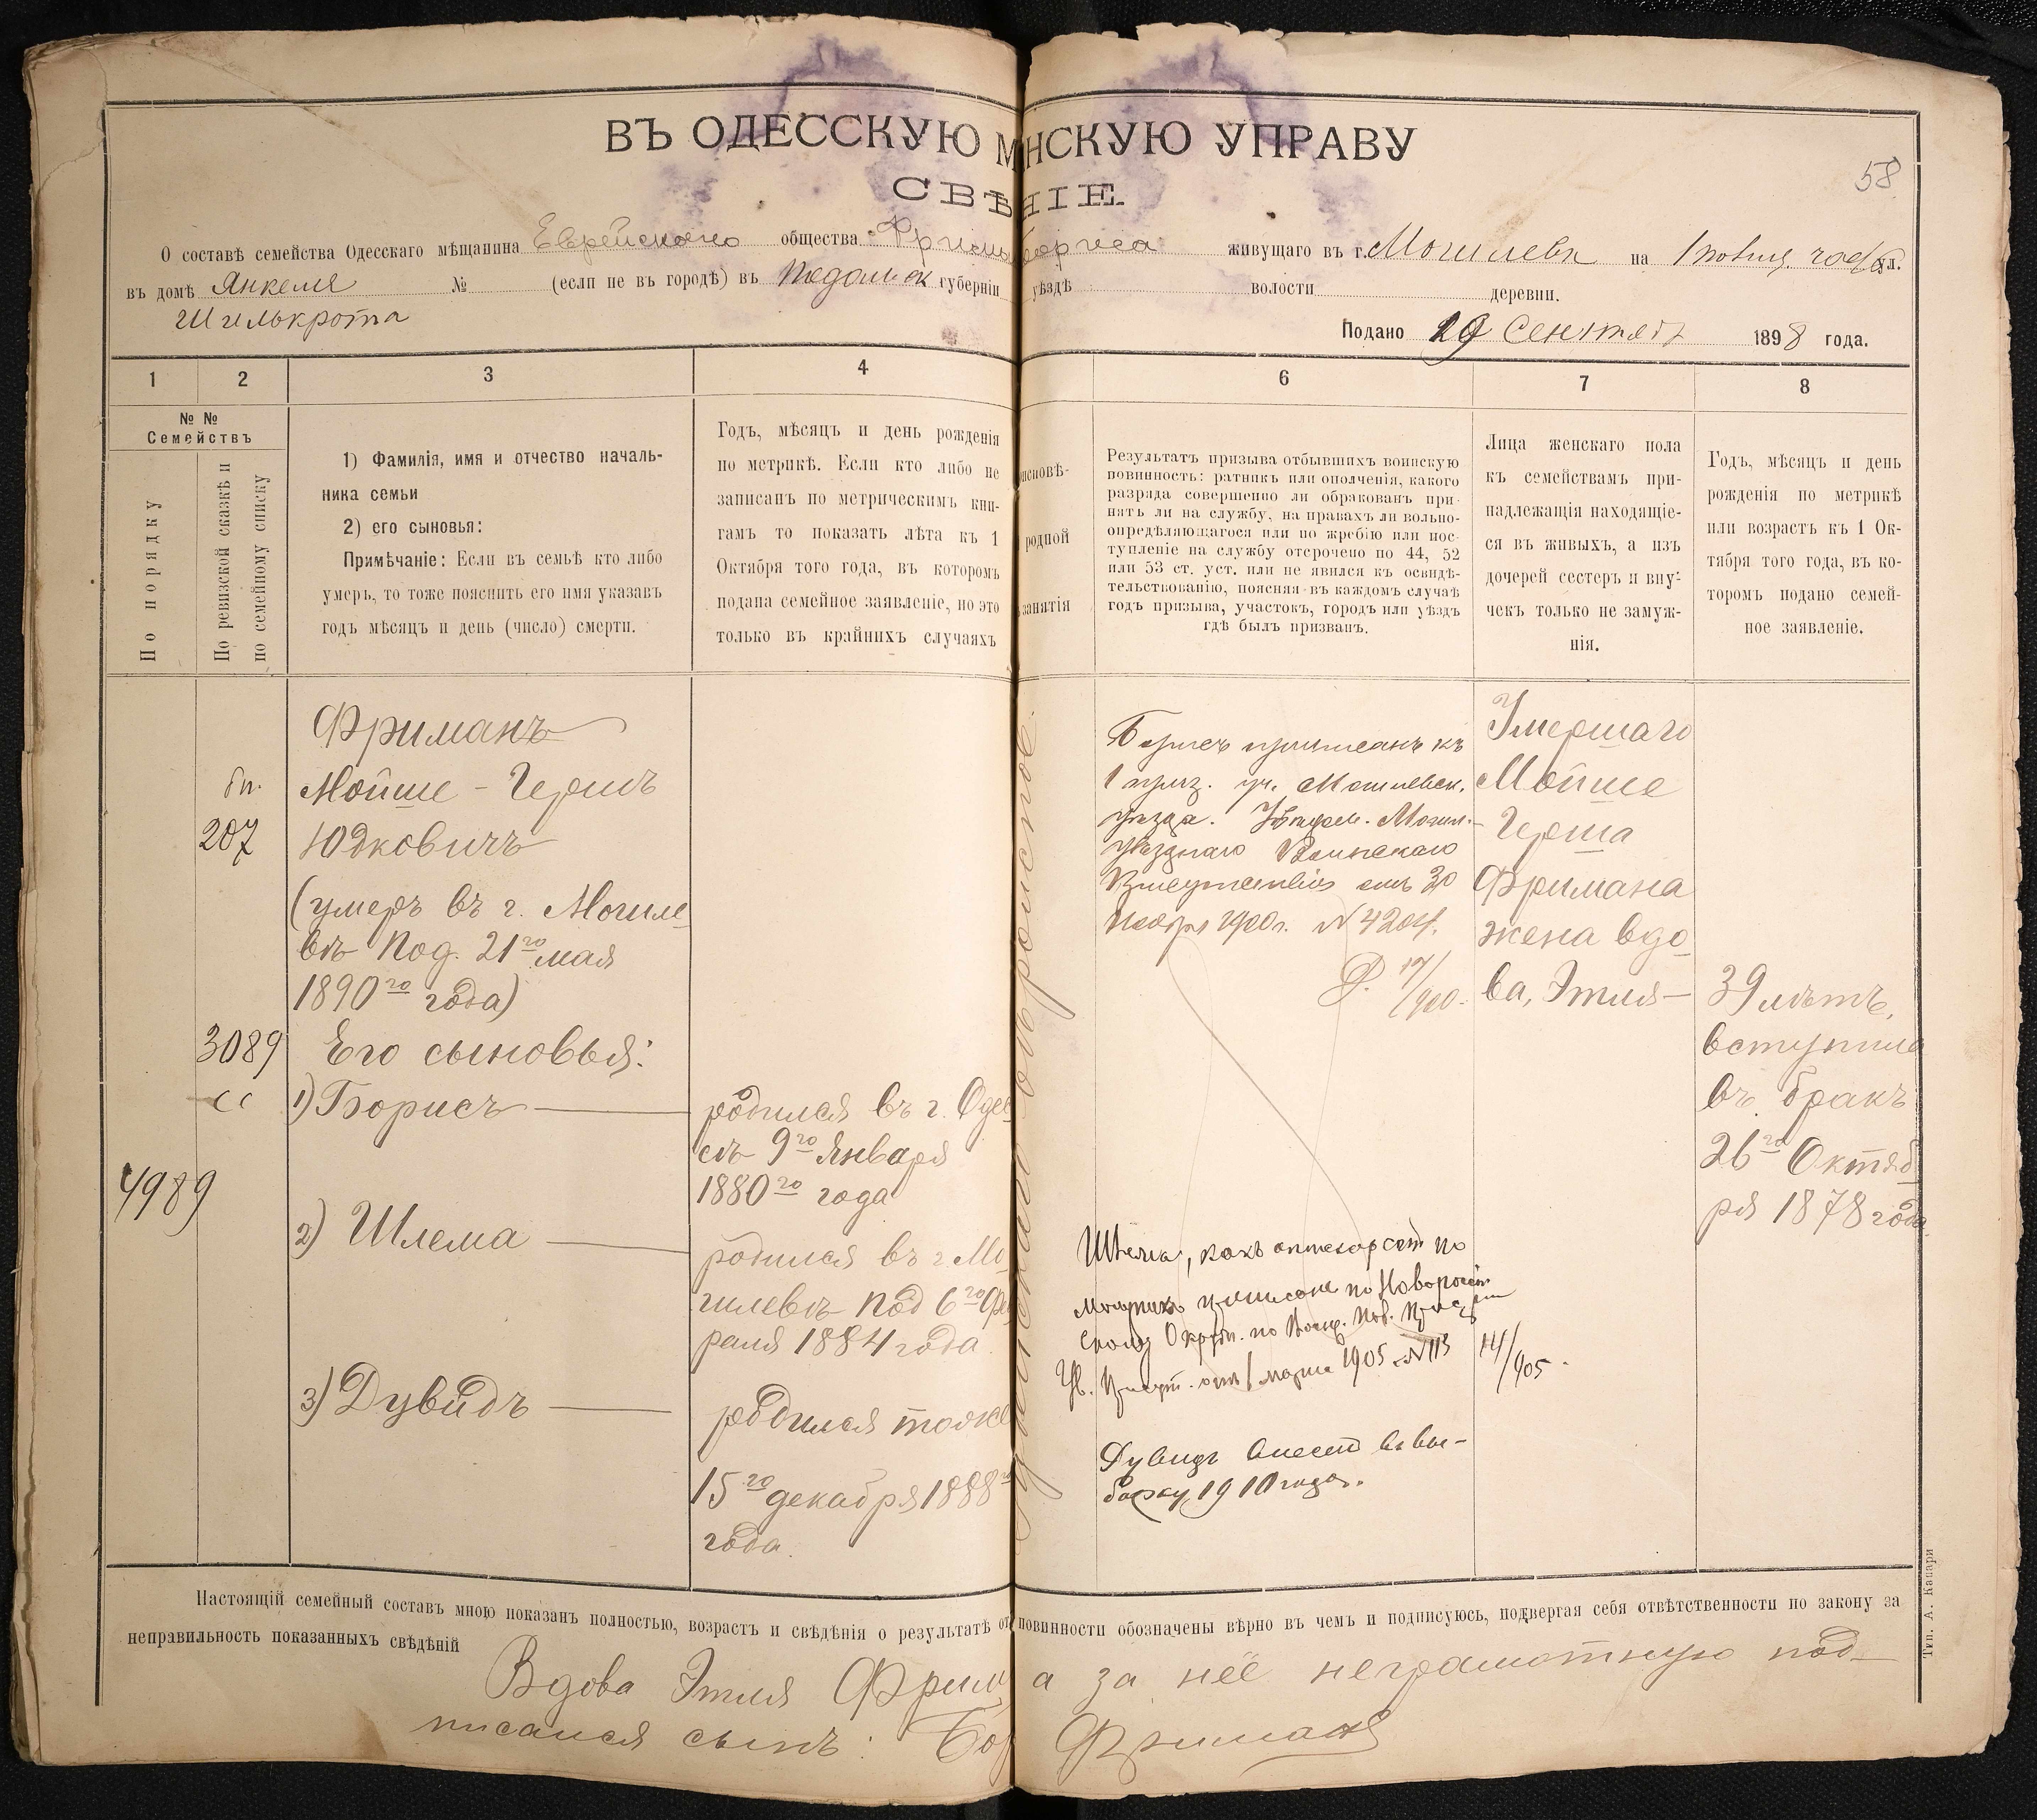 ВЪ ОДЕССКУЮ М НСКУЮ УПРАВУ
58
СВѢ НІЕ.
О составѣ семейства Одесскаго мѣщанина Еврейскаго общества Фрим Бориса живущаго въ г. Могилевѣ на ул.
въ домѣ Янкеля № (если не въ городѣ) въ Подольск губерніи уѣздѣ волости деревни.
Шилькрота
Подано 29 Сентяб 1898 года.
1 2 3 4 6 7 8
№ №
Семействъ
По порядку
По ревизской сказкѣ и
по семейному списку
1) Фамилія, имя и отчество началь-
ника семьи
2) его сыновья:
Примѣчаніе: Если въ семьѣ кто либо
умеръ, то тоже пояснить его имя указавъ
годъ мѣсяцъ и день (число) смерти.
Годъ, мѣсяцъ и день рожденія
по метрикѣ. Если кто либо не
записанъ по метрическимъ кни-
гамъ то показать лѣта къ 1
Октября того года, въ которомъ
подана семейное заявленіе, но это
только въ крайнихъ случаяхъ
исповѣ-
родной
занятія
Результатъ призыва отбывшихъ воинскую
повинность: ратникъ или ополченія, какого
разряда совершенно ли обракованъ при-
нятъ ли на службу, на правахъ ли вольно-
опредѣляющагося или по жребію или пос-
тупленіе на службу отсрочено по 44, 52
или 53 ст. уст. или не явился къ освидѣ-
тельствованію, поясняя въ каждомъ случаѣ
годъ призыва, участокъ, городъ или уѣздъ
гдѣ былъ призванъ.
Лица женскаго пола
къ семействамъ при-
надлежащія находящіе-
ся въ живыхъ, а изъ
дочерей сестеръ и вну-
чекъ только не замуж-
нія.
Годъ, мѣсяцъ и день
рожденія по метрикѣ
или возрастъ къ 1 Ок-
тября того года, въ ко-
торомъ подано семей-
ное заявленіе.
Фриманъ
Мойше - Гершъ
207
Юдковичъ
(умеръ въ г. Могиле
вѣ Под. 21го мая
1890го года)
3089
Его сыновья:
1) Борисъ
4989
2) Шлема
3) Дувидъ
родился въ г. Одес
сѣ 9го Января
1880го года
родился въ г. Мо
гилевѣ Под 6го Фев
раля 1884 года
родился тоже
15го декабря 1888го
года.
вѣроисповѣ
Борисъ приписанъ къ
1 приз. уч. Могилевск.
уѣзда. Увѣдом. Могил.-
уѣзднаго Воинскаго
Присутствія отъ 30
Ноября 1900г. № 4204.
17/900.
Шлема, какъ по
приписанъ по Новороссій
скому по Воин. Пов.
Ув. Присут. отъ 1 марта 1905 № 113
14/905.
Дувидъ внесенъ въ вы-
борку 1910 года.
Умершаго
Мойше
Герша
Фримана
жена вдо
ва, Этля —
39 лѣтъ,
вступила
въ бракъ
26го Октяб
ря 1878 года
Настоящій семейный составъ мною показанъ полностью, возрастъ и свѣдѣнія о результатѣ от повинности обозначены вѣрно въ чемъ и подписуюсь, подвергая себя отвѣтственности по закону за
неправильность показанныхъ свѣдѣній
Вдова Этля Фрим а за неё неграмотную под-
писался сынъ: Бор Фриманъ
Тип. А. Качари